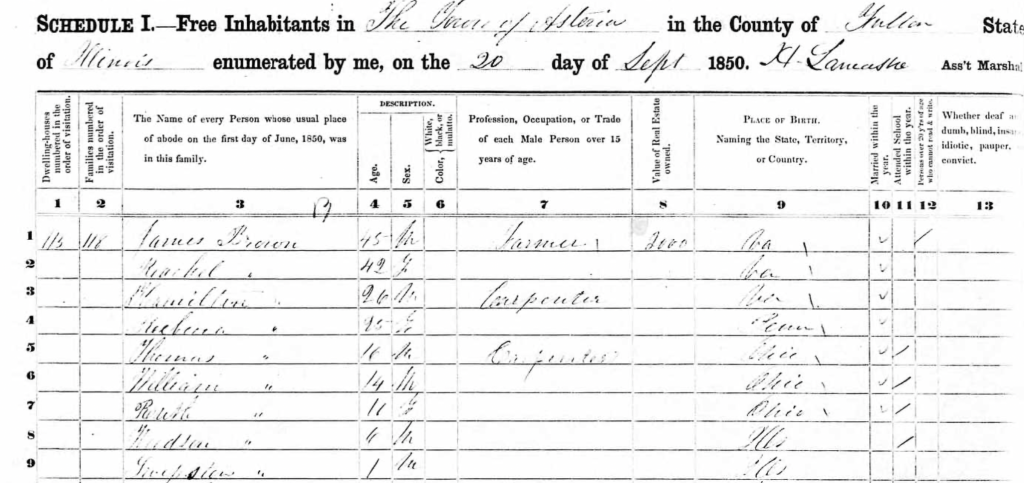 SCHEDULE I.—Free Inhabitants in The Town of Astoria in the County of Fulton State
of Illinois enumerated by me, on the 20 day of Sept 1850. Ass't Marshal
Dwelling-houses numbered in the order of visitation.
Families numbered in the order of visitation.
The Name of every Person whose usual place of abode on the first day of June, 1850, was in this family.
DESCRIPTION.
Age.
Sex.
Color, { White, black, or mulatto.
Profession, Occupation, or Trade of each Male Person over 15 years of age.
Value of Real Estate owned.
PLACE OF BIRTH. Naming the State, Territory, or Country.
Married within the year.
Attended School within the year.
Persons over 20 y'rs of age who cannot read & write.
Whether deaf and dumb, blind, insane, idiotic, pauper, convict.
1 2 3 4 5 6 7 8 9 10 11 12 13
1 James Brown 45 M Farmer 2000 Va
2 Rachel " 42 F Va
3 Hamilton " 26 M Carpenter Va
4 " 25 F Tenn
5 Thomas " 16 M Carpenter Ohio
6 William " 14 M Ohio
7 Ruth " 11 F Ohio
8 " 6 M Ills
9 " 1 M Ills